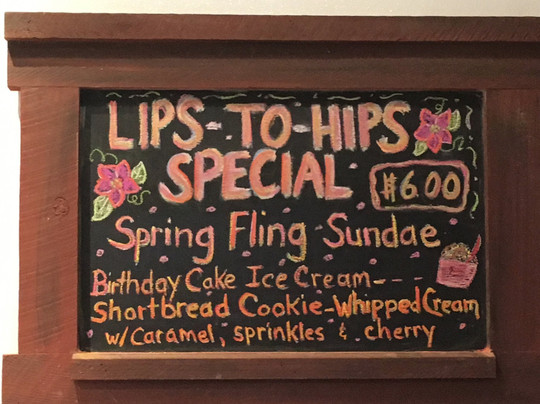 LIPS-TO-HIPS
SPECIAL $6.00
Spring Fling Sundae
Birthday Cake Ice Cream---
Shortbread Cookie-Whipped Cream
w/Caramel, sprinkles & cherry